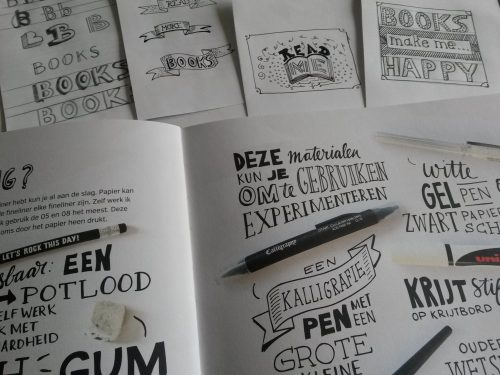 B B B
B Bb
BOOKS
BOOKS
BOOKS
READ
MORE
BOOKS
READ
ME
BOOKS
make me...
HAPPY
NG?
neliner hebt kun je al aan de slag. Papier kan
fineliner elke fineliner zijn. Zelf werk ik
gebruik de 05 en 08 het meest. Deze
oms door het papier heen drukt.
LET'S ROCK THIS DAY!
sbaar: EEN
POTLOOD
ELF WERK
K MET
ARDHEID
GUM
DEZE materialen
KUN JE
OM te GEBRUIKEN
EXPERIMENTEREN
Calligraphy
EEN
KALLIGRAFIE
PEN MET
EEN
GROTE
KLEINE
witte
GEL PEN
ZWART PAPIER
SCH
uni
KRIJT stif
OP KRIJTBORD
OUDER
WETS